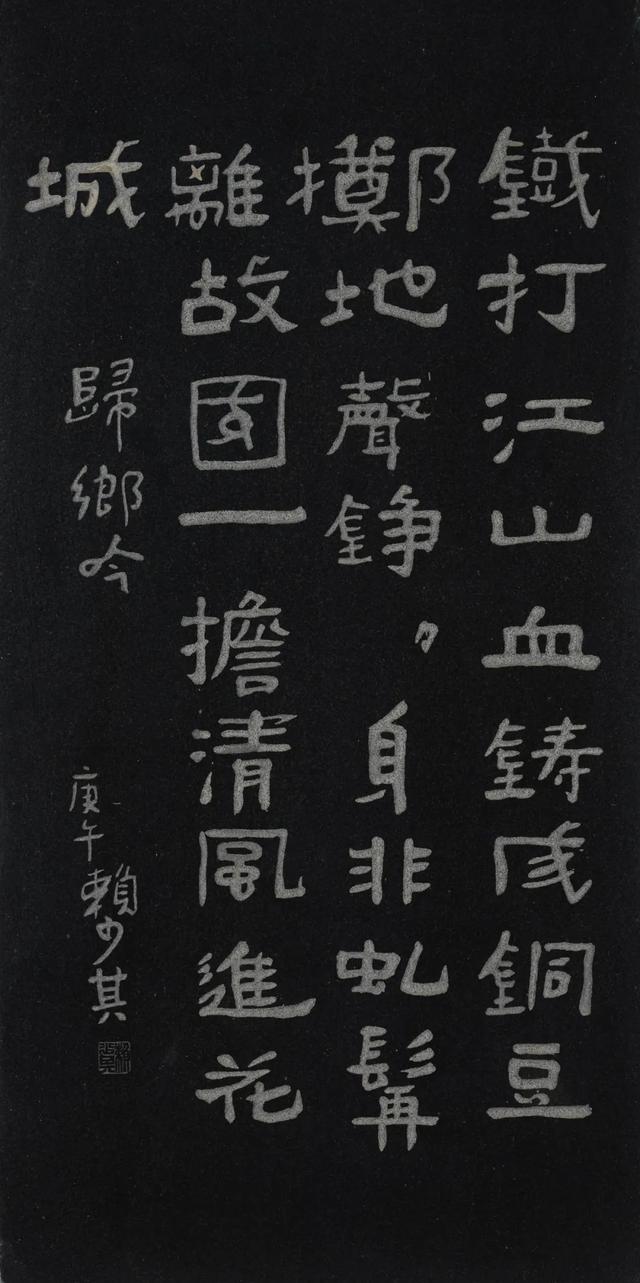 鐵打江山血鑄成銅豆
擲地聲錚々身非虬髯
離故国一擔清風進花
城
歸鄉吟
庚午賴少其